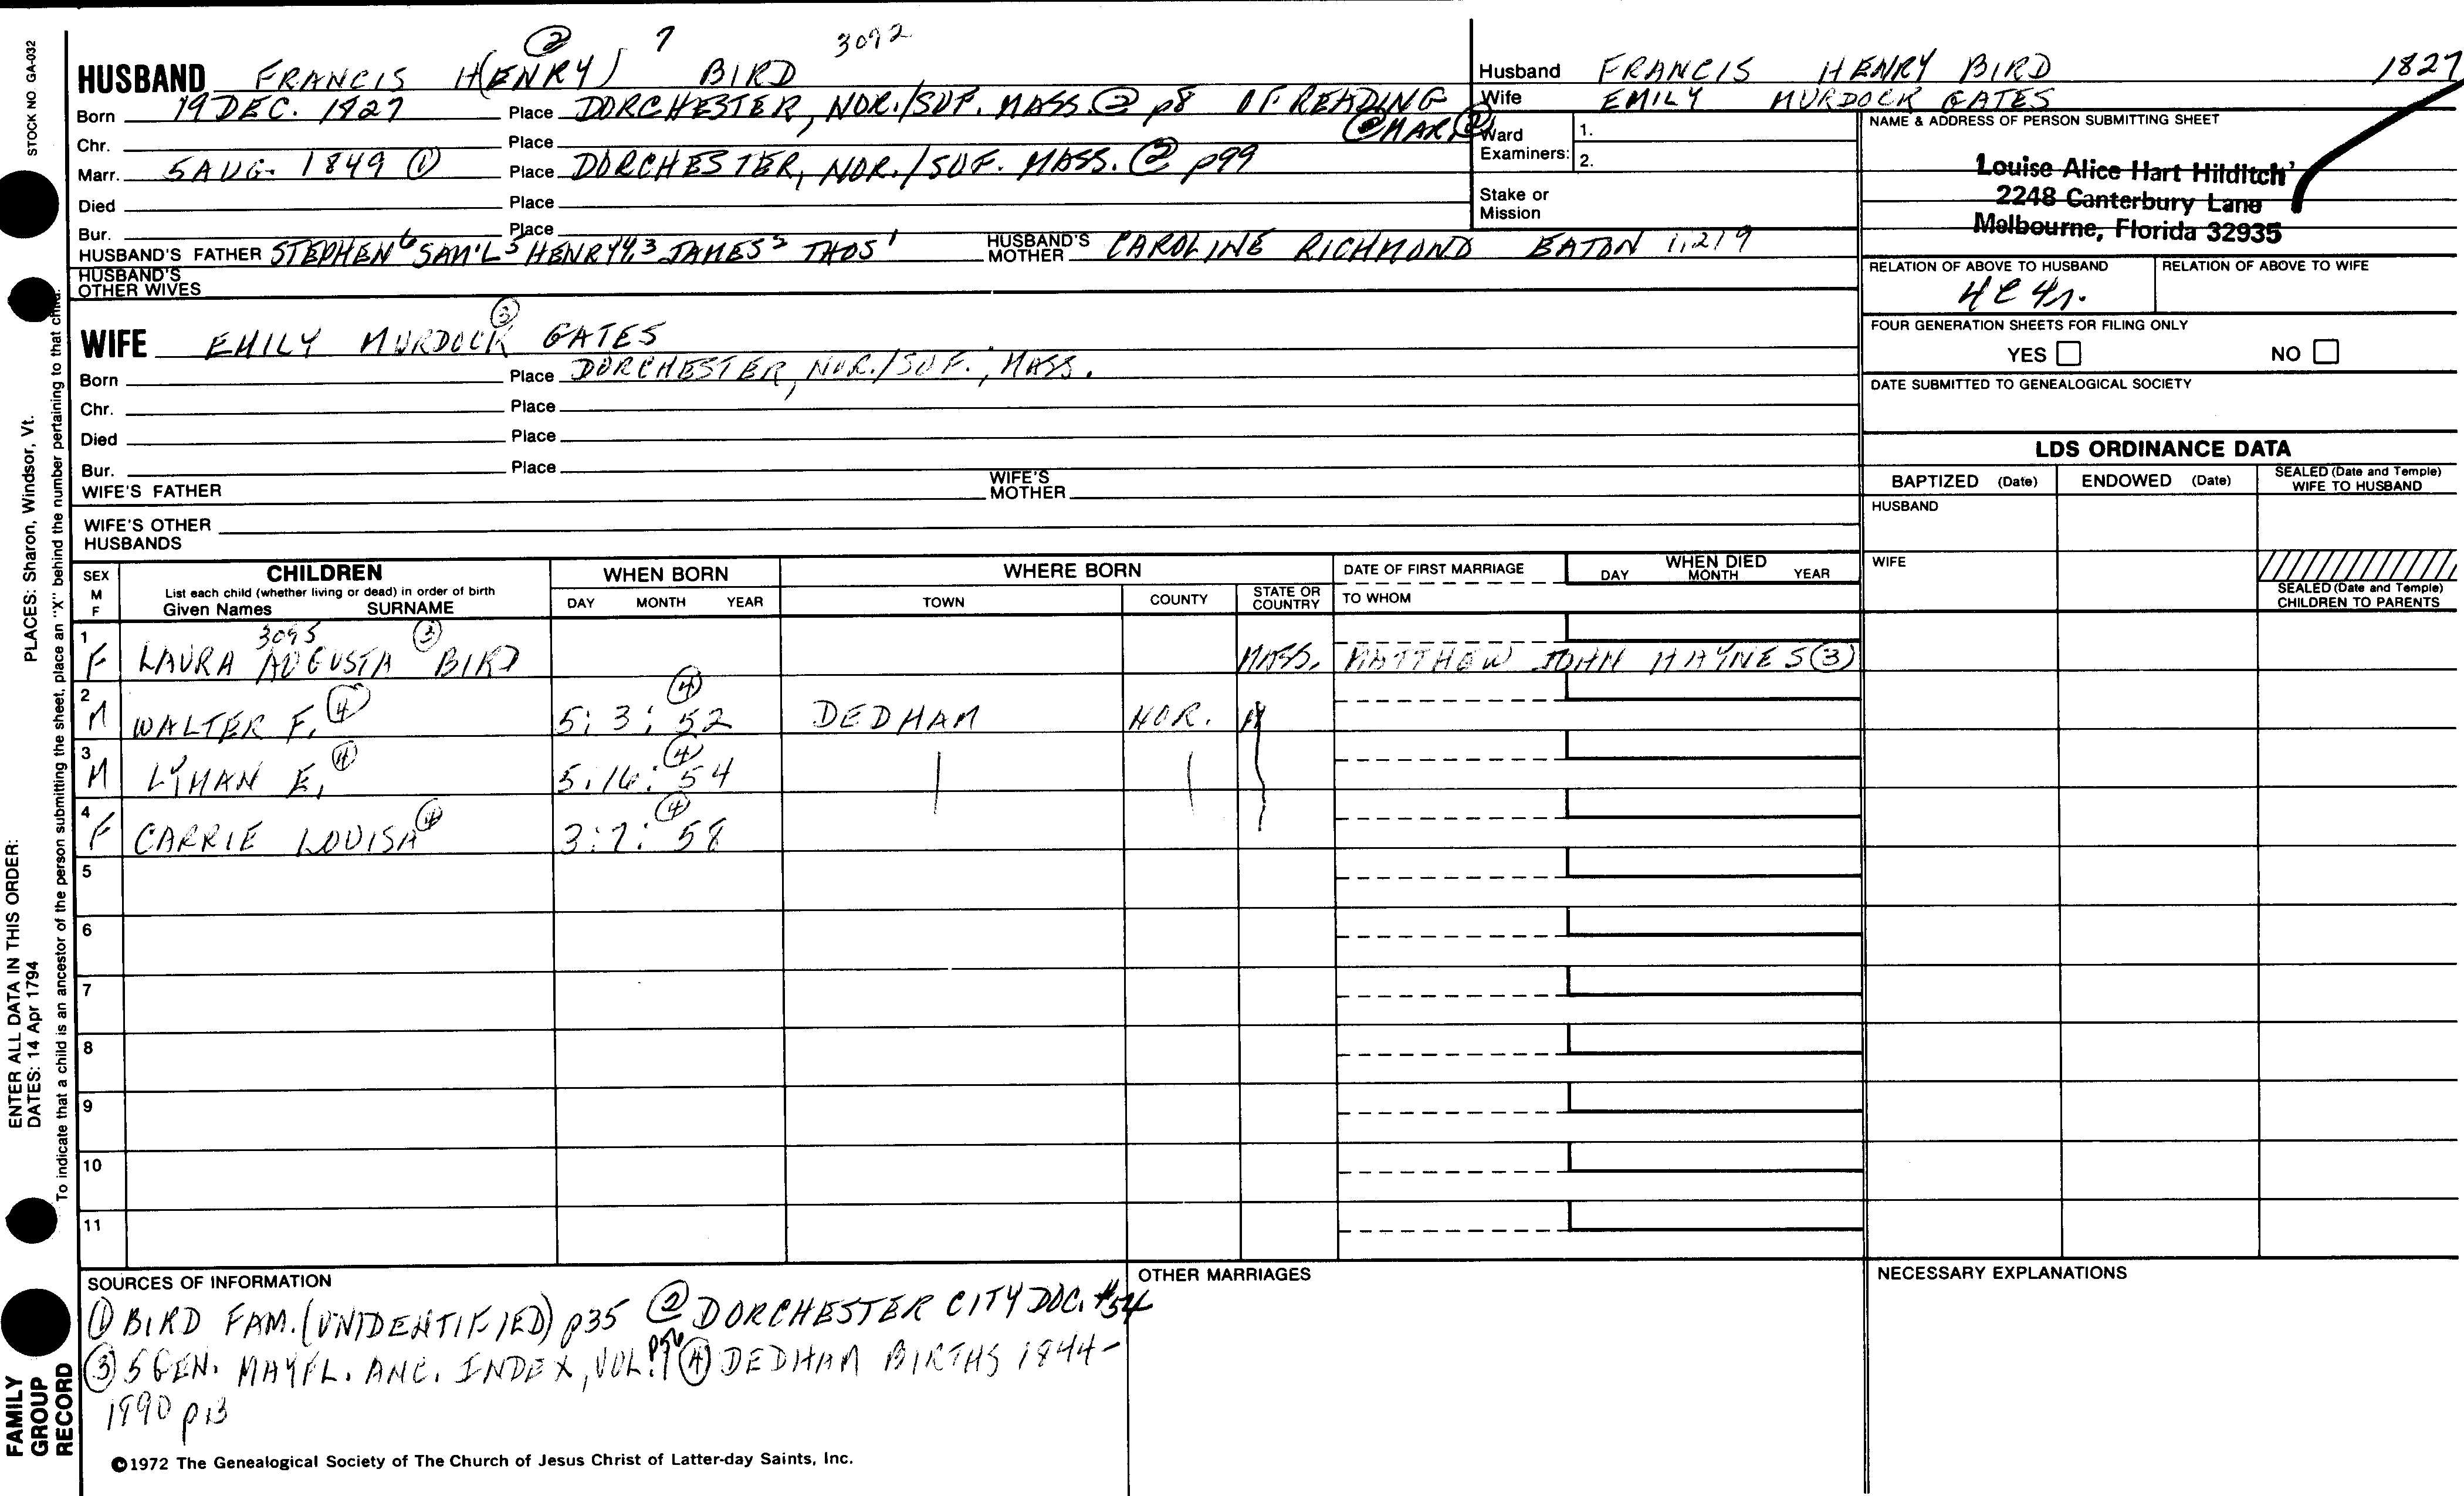 STOCK NO GA-032
② 7 3092
HUSBAND FRANCIS H(ENRY) BIRD
Born 19 DEC. 1827 Place DORCHESTER, NOR./SUF. MASS. ② p8 OF READING
Chr. Place @ MAR. ②
Marr. 5 AUG. 1849 ① Place DORCHESTER, NOR./SUF. MASS. ② p99
Died Place
Bur. Place
HUSBAND'S FATHER STEPHEN 6 SAM'L 5 HENRY 4,3 JAMES 2 THOS 1 HUSBAND'S MOTHER CAROLINE RICHMOND EATON 1,2,9
HUSBAND'S OTHER WIVES
WIFE EMILY MURDOCK ③ GATES
Born Place DORCHESTER, NOR./SUF., MASS.
Chr. Place
Died Place
Bur. Place
WIFE'S FATHER WIFE'S MOTHER
WIFE'S OTHER HUSBANDS
Husband FRANCIS HENRY BIRD 1827
Wife EMILY MURDOCK GATES
Ward 1.
Examiners: 2.
Stake or
Mission
NAME & ADDRESS OF PERSON SUBMITTING SHEET
Louise Alice Hart Hilditch
2248 Canterbury Lane
Melbourne, Florida 32935
RELATION OF ABOVE TO HUSBAND RELATION OF ABOVE TO WIFE
4C 4r.
FOUR GENERATION SHEETS FOR FILING ONLY
YES NO
DATE SUBMITTED TO GENEALOGICAL SOCIETY
LDS ORDINANCE DATA
BAPTIZED (Date) ENDOWED (Date) SEALED (Date and Temple) WIFE TO HUSBAND
HUSBAND
WIFE
SEALED (Date and Temple)
CHILDREN TO PARENTS
SEX M F CHILDREN WHEN BORN WHERE BORN DATE OF FIRST MARRIAGE WHEN DIED
List each child (whether living or dead) in order of birth
Given Names SURNAME DAY MONTH YEAR TOWN COUNTY STATE OR COUNTRY TO WHOM DAY MONTH YEAR
3095 ③
1 F LAURA AUGUSTA BIRD MASS. MATTHEW JOHN HAYNES (3)
2 M WALTER F. ④ 5: 3: 52 ④ DEDHAM NOR. M
3 M LYMAN E. ④ 5:16: 54 ④
4 F CARRIE LOUISA ④ 3:7: 58 ④
5
6
7
8
9
10
11
SOURCES OF INFORMATION
① BIRD FAM. (UNIDENTIFIED) p35 ② DORCHESTER CITY DOC. #54
③ 5 GEN. MAYFL. ANC. INDEX, VOL. 1 p56 ④ DEDHAM BIRTHS 1844-
1890 p13
OTHER MARRIAGES
NECESSARY EXPLANATIONS
©1972 The Genealogical Society of The Church of Jesus Christ of Latter-day Saints, Inc.
ENTER ALL DATA IN THIS ORDER: PLACES: Sharon, Windsor, Vt.
DATES: 14 Apr 1794
To indicate that a child is an ancestor of the person submitting the sheet, place an "X" behind the number pertaining to that child.
FAMILY
GROUP
RECORD